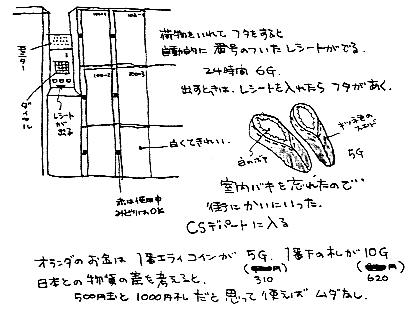 荷物をいれてフタをすると
自動的に番号のついたレシートがでる.
24時間 6G.
出すときは、レシートを入れたらフタがあく.
100-1
100-2
200-3
レシートが出る
白くてきれい.
赤は使用中
みどりはOK
白のボア
5G
室内バキを忘れたので…
街にかいにいった.
CSデパートに入る
オランダのお金は1番エライコインが5G. 1番下の札が10G
(310
(620
日本との物質の差を考えると.
500円玉と1000円札だと思って使えばムダなし.